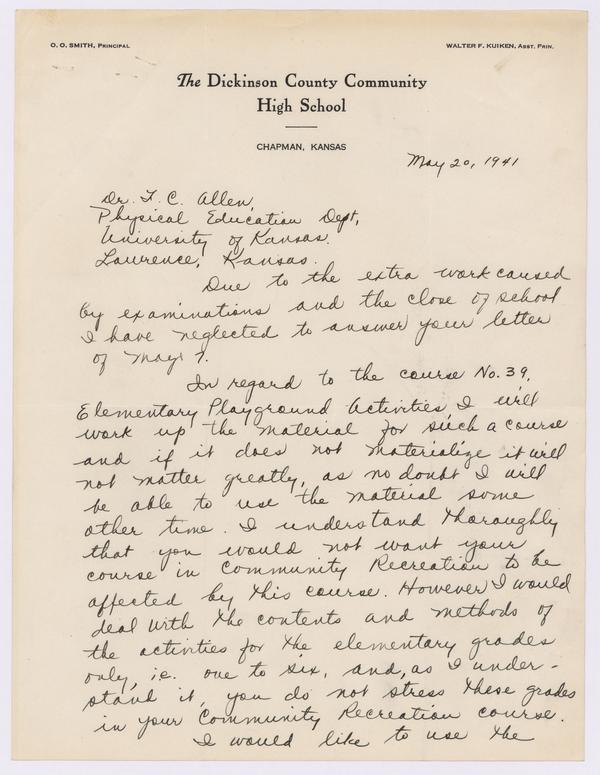 O. O. SMITH, PRINCIPAL
WALTER F. KUIKEN, ASST. PRIN.
The Dickinson County Community
High School
CHAPMAN, KANSAS
May 20, 1941
Dr. F. C. Allen,
Physical Education Dept,
University of Kansas.
Lawrence, Kansas.
Due to the extra work caused
by examinations and the close of school
I have neglected to answer your letter
of May 7.
In regard to the course No. 39,
Elementary Playground Activities, I will
work up the material for such a course
and if it does not materialize it will
not matter greatly, as no doubt I will
be able to use the material some
other time. I understand thoroughly
that you would not want your
course in Community Recreation to be
affected by this course. However I would
deal with the contents and methods of
the activities for the elementary grades
only, i.e. one to six, and, as I under-
stand it, you do not stress these grades
in your Community Recreation course.
I would like to use the